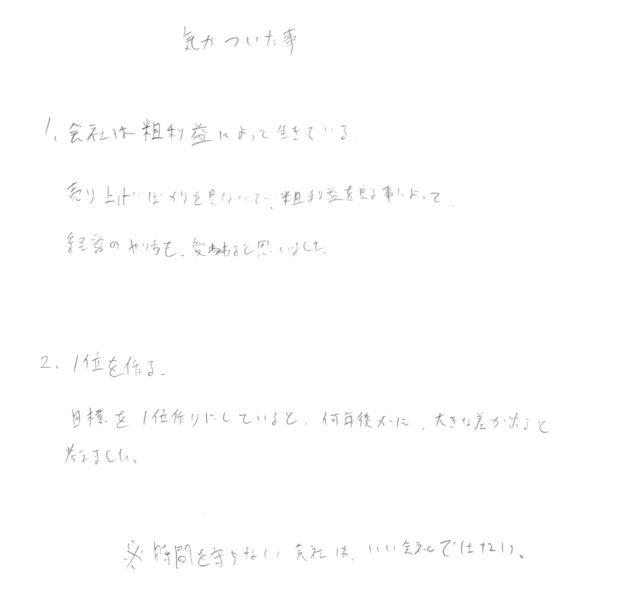 気がついた事
1、会社は粗利益によって生きている。
売り上げばかりを見ないで、粗利益を見る事によって
経営のやり方も、変わると思いました。
2. 1位を作る。
目標を1位作りにしていると、何年後かに、大きな差が出ると
考えました。
※時間を守らない会社は、いい会社ではない。